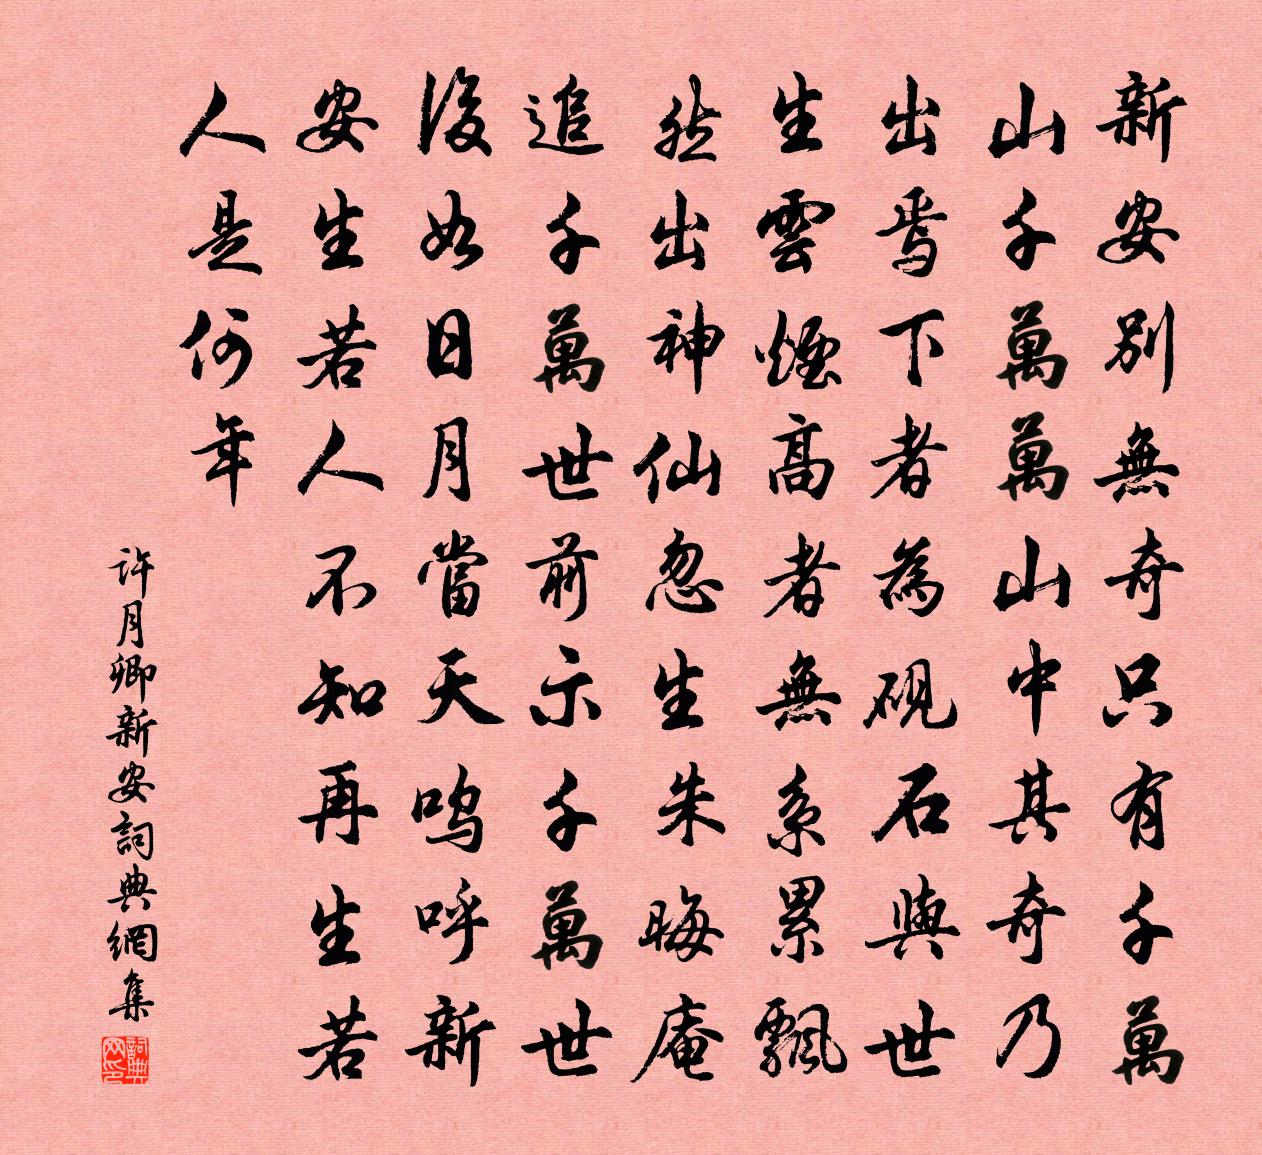 新安別無奇只有千萬
山千萬萬山中其奇乃
出焉下者為硯石與世
生雲煙高者無系累飄
然出神仙忽生朱晦庵
追千萬世前示千萬世
後如日月當天嗚呼新
安生若人不知再生若
人是何年
許月卿新安詞典網集
詞典网印